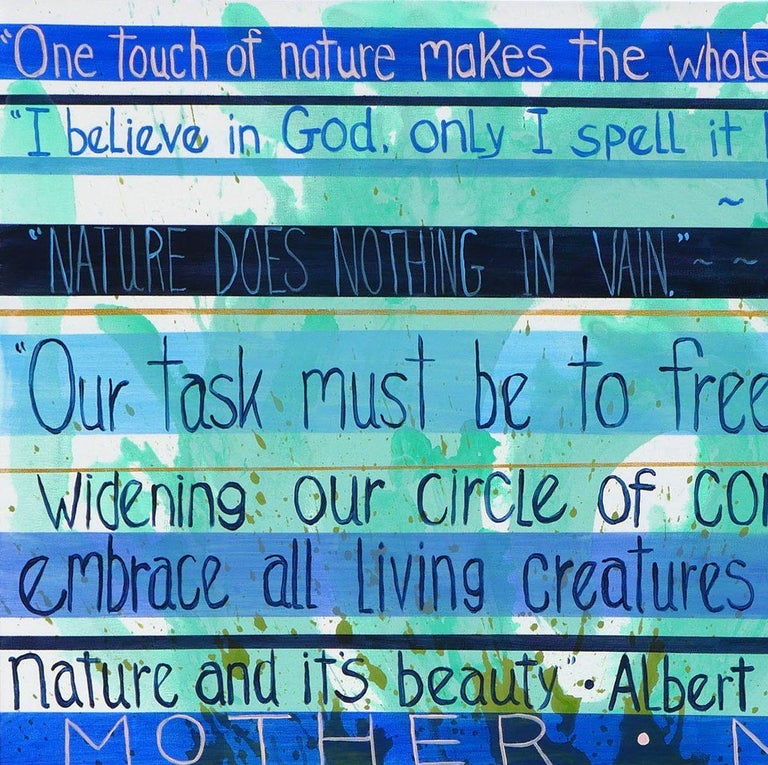 "One touch of nature makes the whole
"I believe in God, only I spell it
~
"NATURE DOES NOTHING IN VAIN." ~ ~
"Our task must be to free
widening our circle of
embrace all living creatures
nature and it's beauty" • Albert
MOTHER •